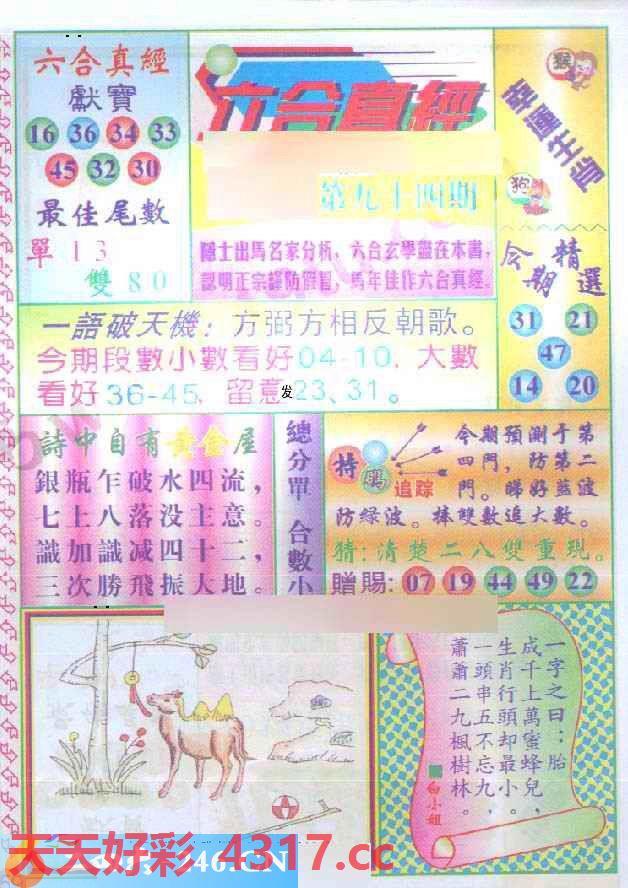 六合真經
獻寶
16 36 34 33
45 32 30
最佳尾數
單 1 3
雙 8 0
六合真經
第九十四期
隱士出馬名家分析，六合玄學盡在本書，
認明正宗謹防假冒，馬年佳作六合真經。
猴
幸運生肖
狗
今期精選
31 21
47
14 20
一語破天機：方弼方相反朝歌。
今期段數小數看好04-10，大數
看好36-45，留意23、31。
发
詩中自有黃金屋
銀瓶乍破水四流，
七上八落没主意。
識加識减四十二，
三次勝飛振大地。
總分單 合數小
特碼
追踪
今期預測于第
四門，防第二
門。睇好藍波
防緑波。捧雙數追大數。
猜：清楚二八雙重現。
贈賜：07 19 44 49 22
一字之曰：胎
成千上萬蜜蜂兒，
生肖行頭却最小。
一頭串五不忘九，
蕭蕭二九楓樹林。
■白小姐
天天好彩 4317.cc
246.CN